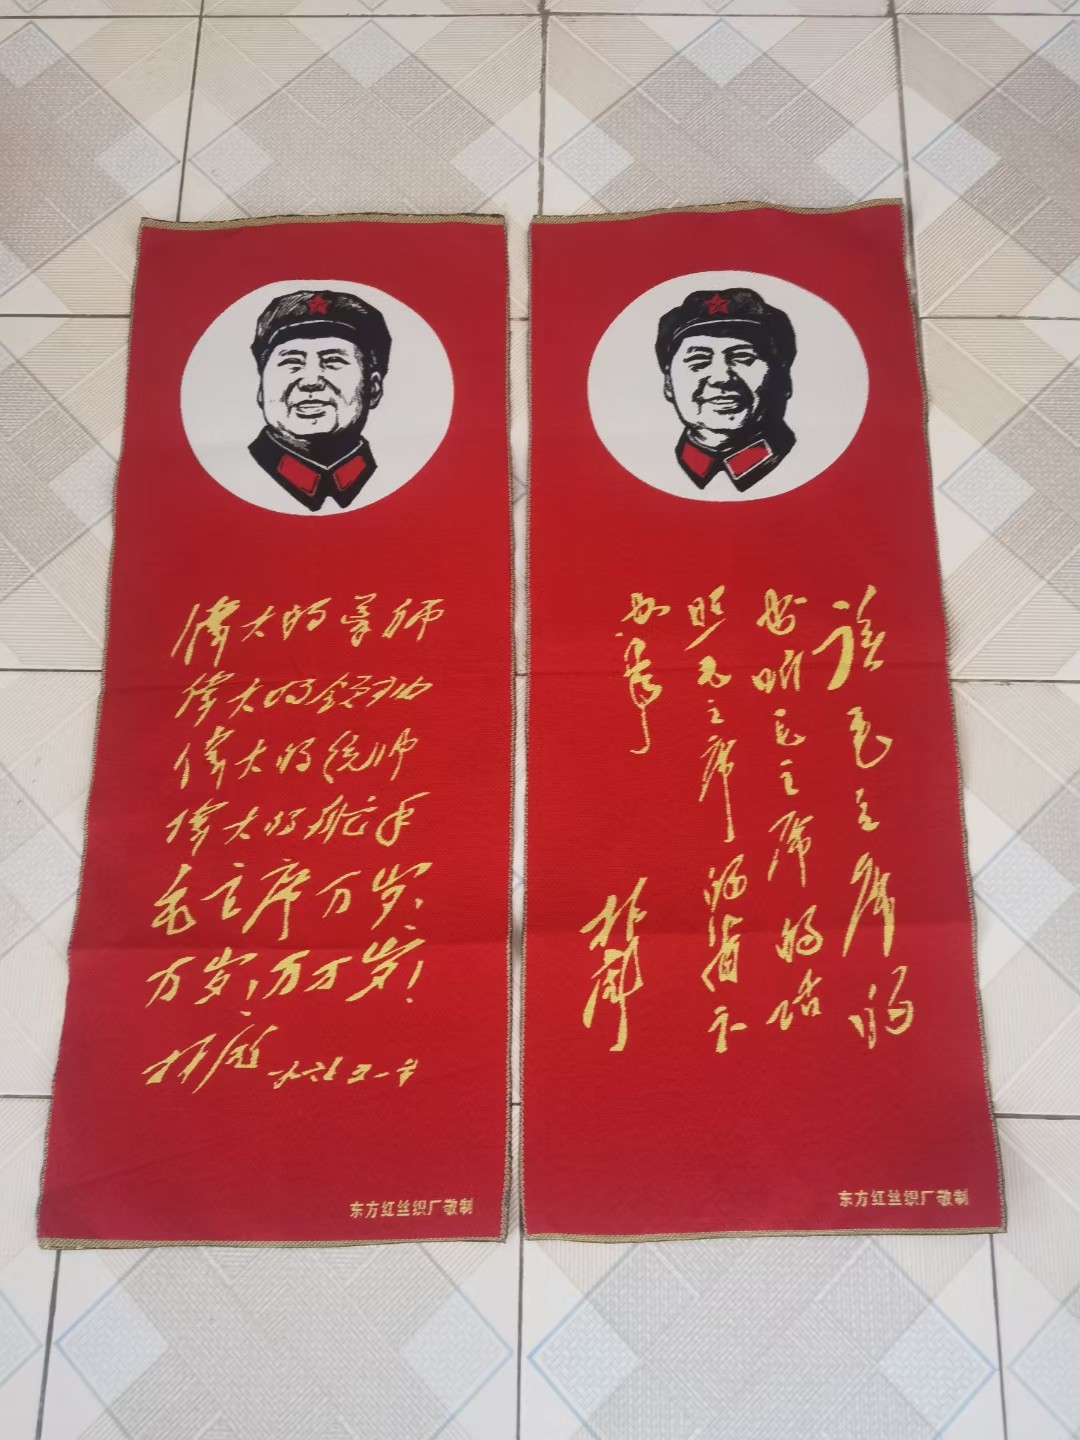 偉大的导师
偉大的領袖
偉大的统帅
偉大的舵手
毛主席万岁，
万岁！万万岁！
林彪 一九六七.五.一节
东方红丝织厂敬制
读毛主席的
书听毛主席的话
照毛主席的指示
办事
林彪
东方红丝织厂敬制